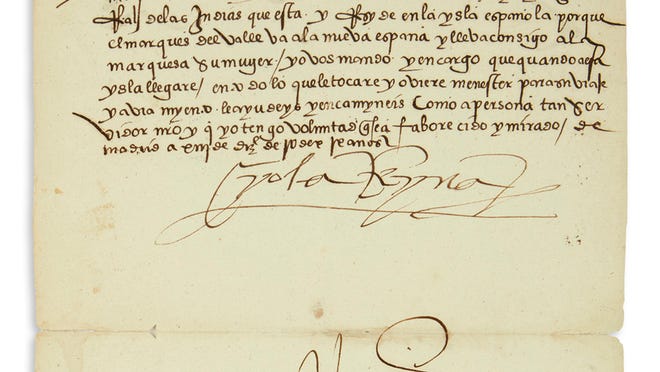 Ralj de las Indias que esta y Resyde en la ysla española porque
el marques del valle va a la nueva españa y lleva consigo a la
marquesa su muger / yo vos mando y encargo que quando a esa
ysla llegare / en todo lo que le tocare y oviere menester para su viaje
y aviamyento le ayudeys y encamyneis Como a persona tan ser
vidor nro y q yo tengo voluntad q sea faborecido y mirado / de
madrid a de dize de años
yo la Reyna